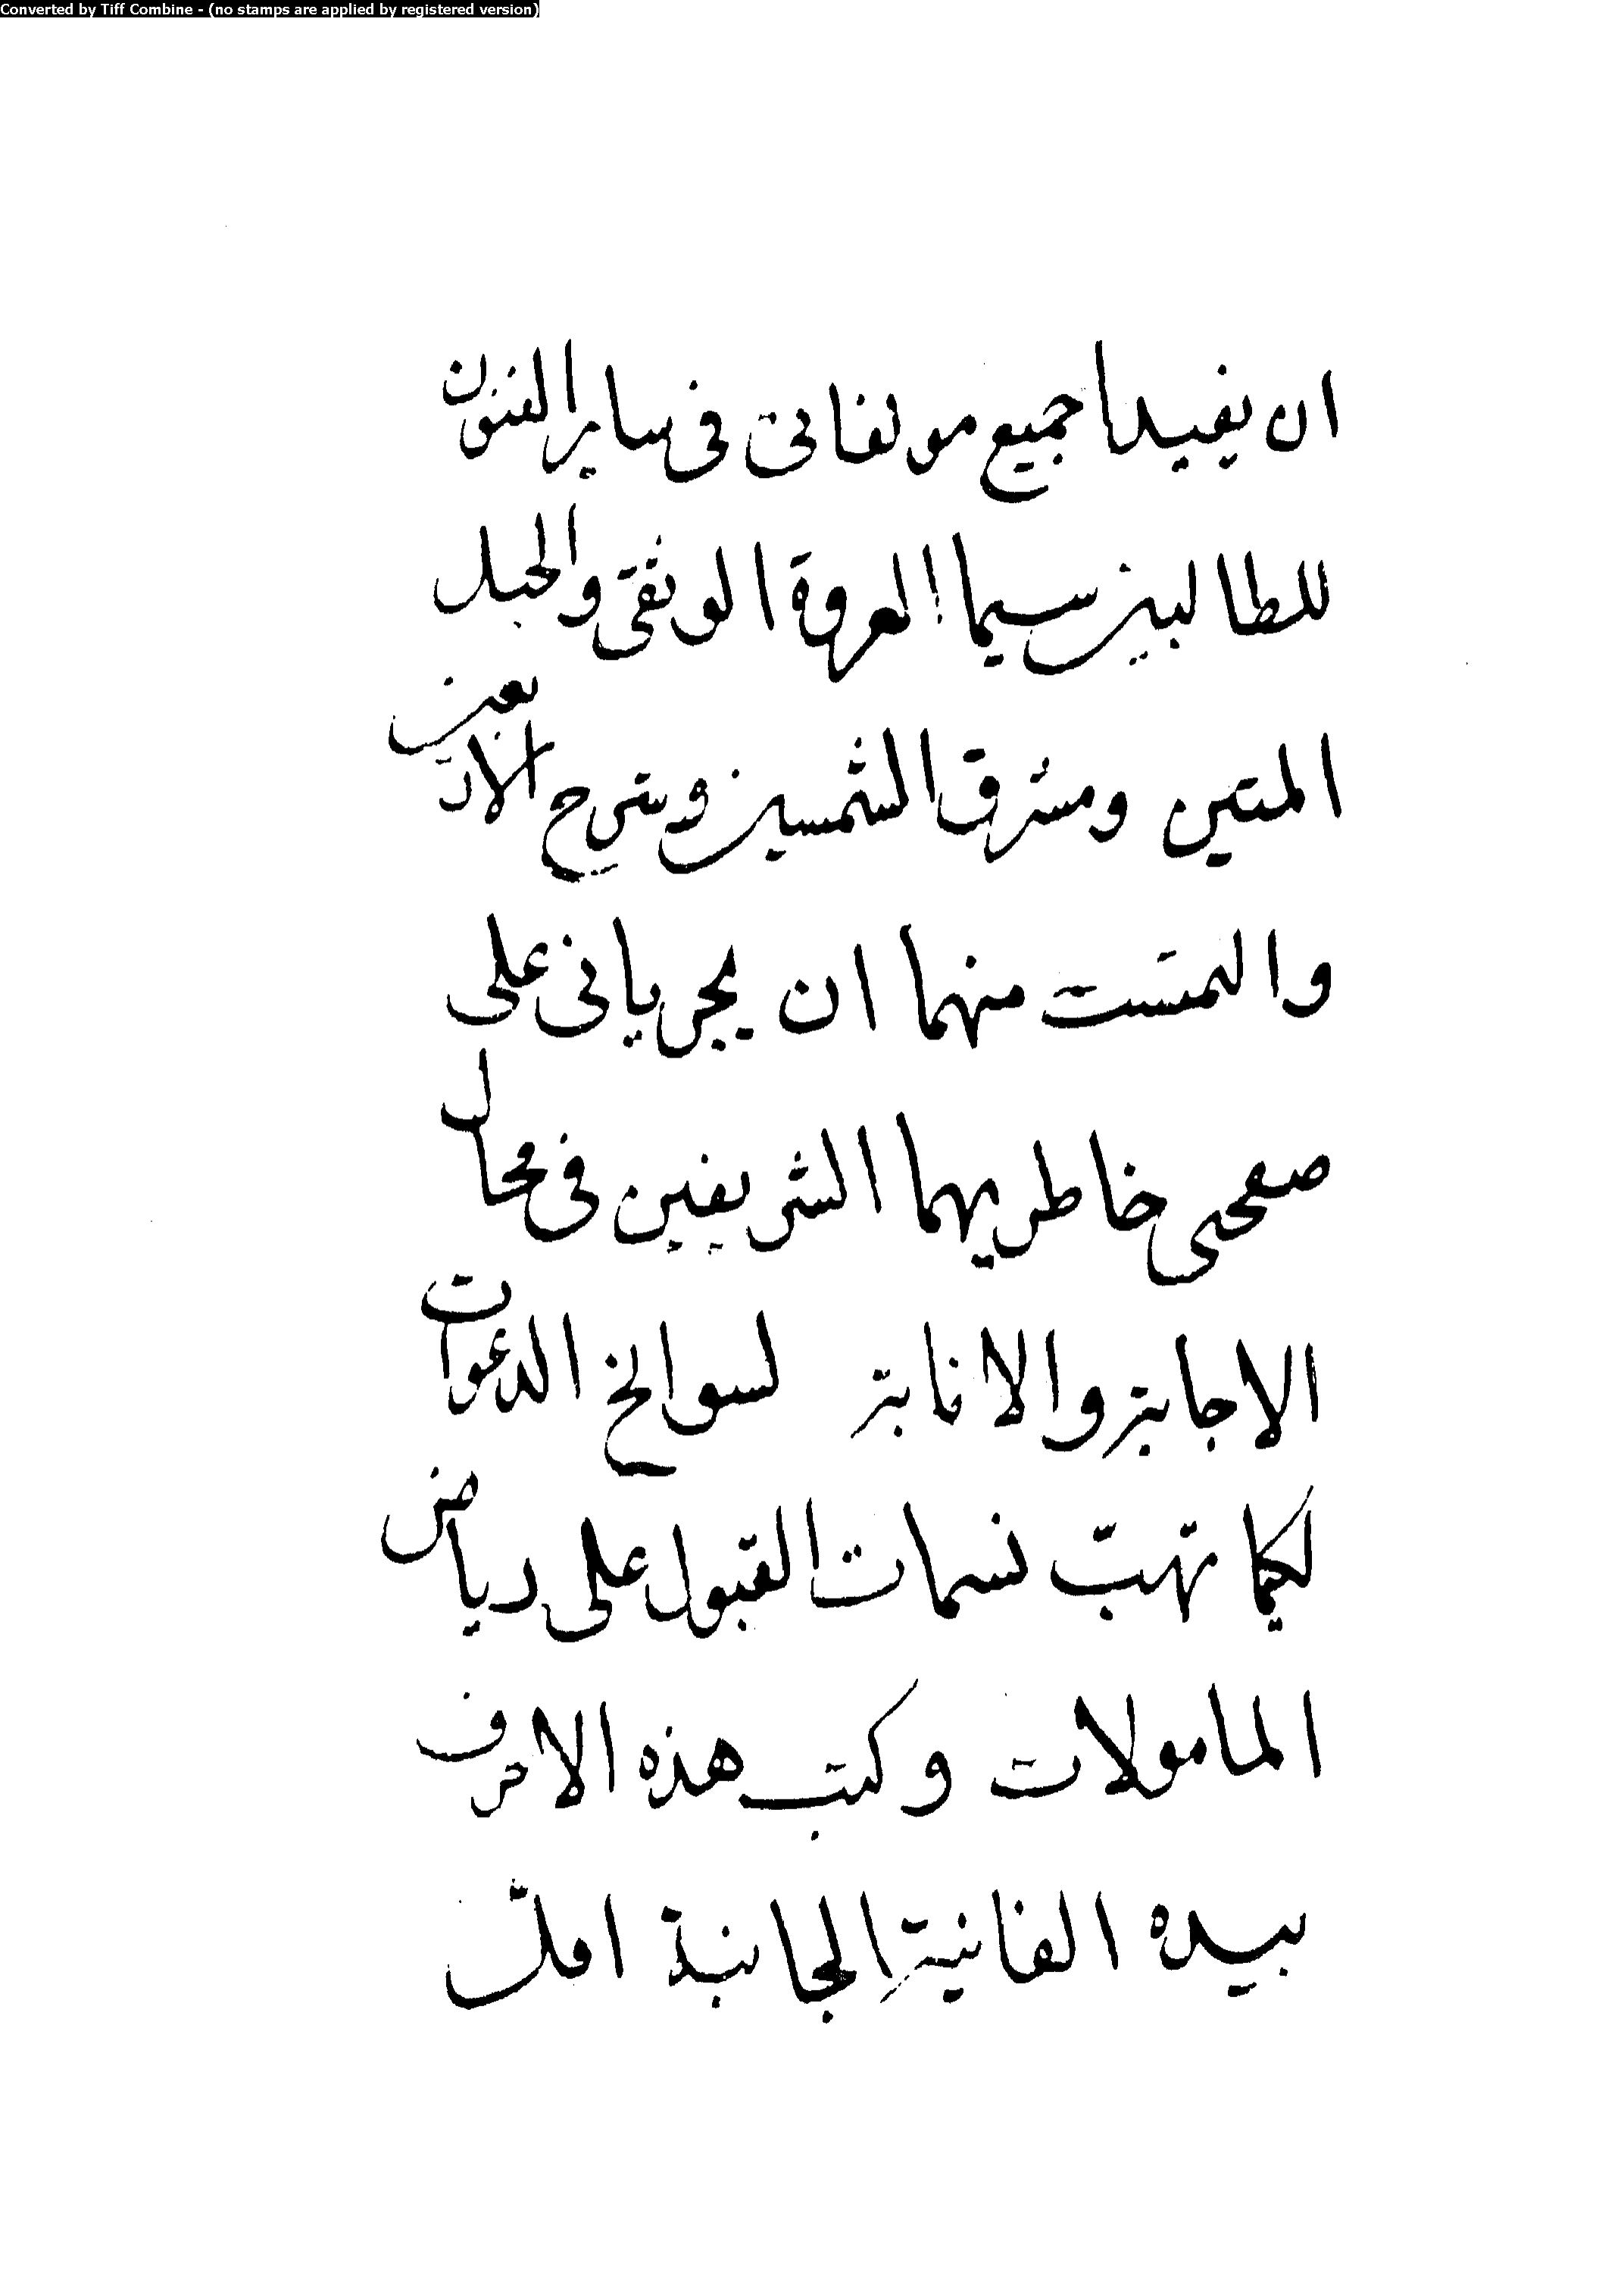 Converted by Tiff Combine - (no stamps are applied by registered version)
ان يفيدا جميع مولفاتى فى ساير الفنون
للطالبين سيما العروة الوثقى والحبل
المتين ومشرق الشمسين وشرح الاربعين
والتمست منهما ان يجريانى على
صفحى خاطريهما الشريفين فى محال
الاجابة والانابة لسوانح الدعوات
لكيما تهبّ نسمات القبول على رياض
المامولات وكتب هذه الاحرف
بيده الفانية الجانية اقلّ